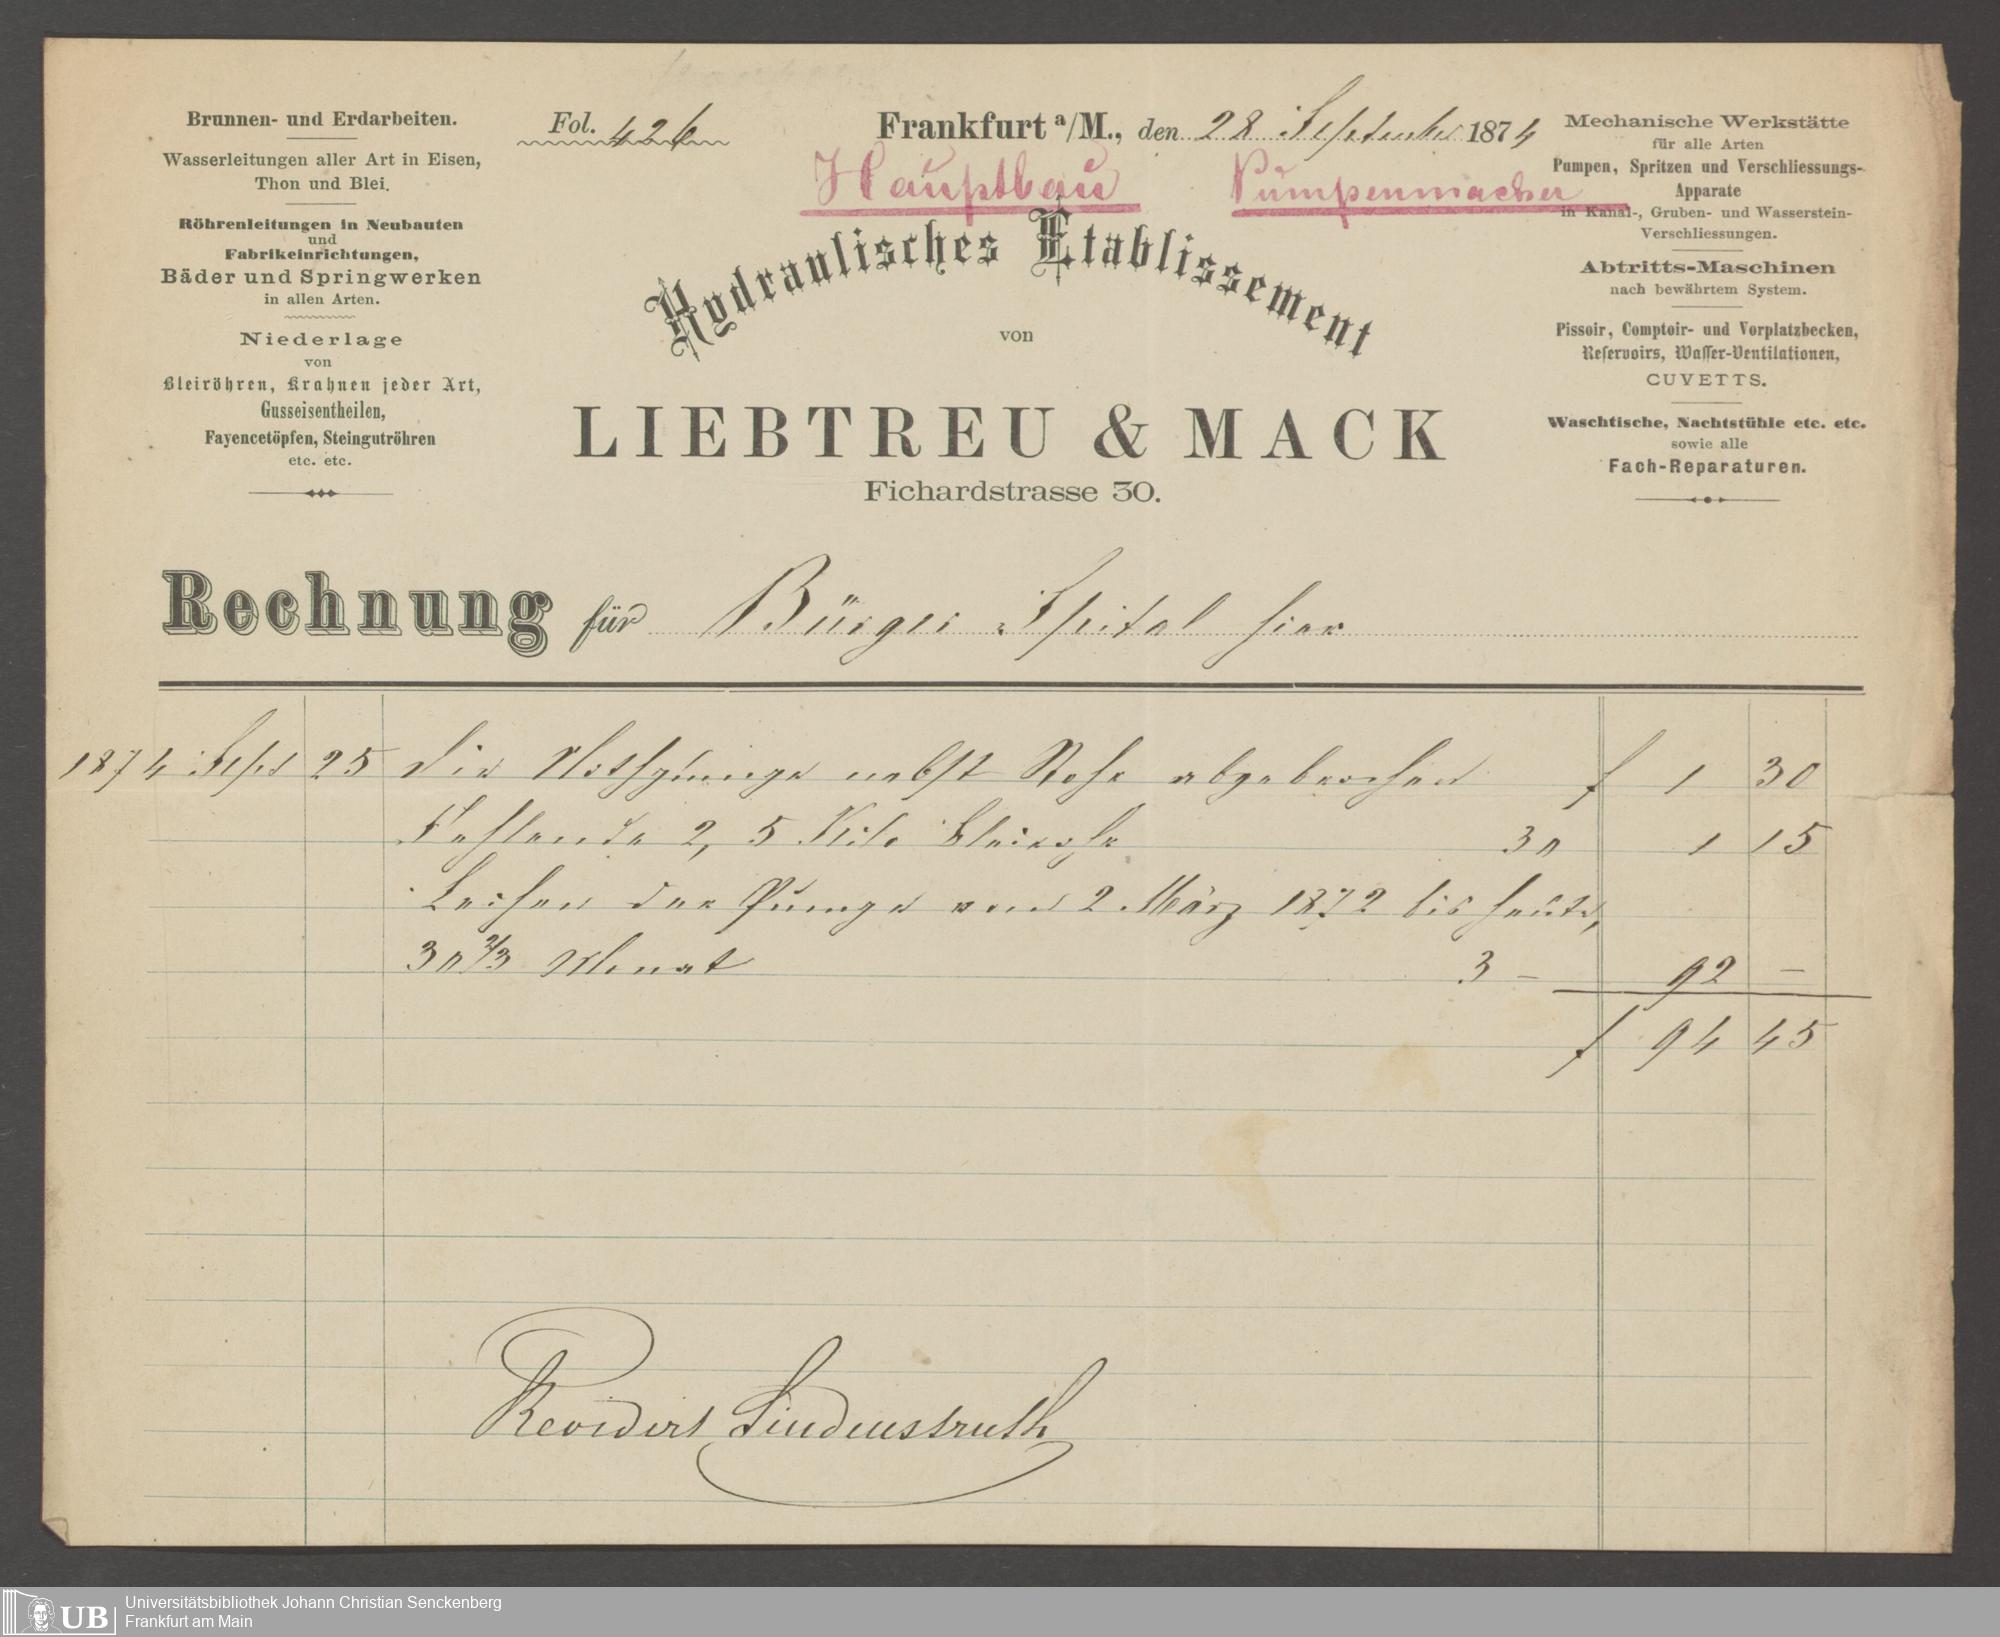 Brunnen- und Erdarbeiten.
Wasserleitungen aller Art in Eisen,
Thon und Blei.
Röhrenleitungen in Neubauten
und
Fabrikeinrichtungen,
Bäder und Springwerken
in allen Arten.
Niederlage
von
Bleiröhren, Krahnen jeder Art,
Gusseisentheilen,
Fayencetöpfen, Steingutröhren
etc. etc.
Fol. 426
Frankfurt a/M., den 28 September 1874
Hauptbau Pumpenmacher
Hydraulisches Etablissement
von
LIEBTREU & MACK
Fichardstrasse 30.
Mechanische Werkstätte
für alle Arten
Pumpen, Spritzen und Verschliessungs-
Apparate
in Kanal-, Gruben- und Wasserstein-
Verschliessungen.
Abtritts-Maschinen
nach bewährtem System.
Pissoir, Comptoir- und Vorplatzbecken,
Reservoirs, Wasser-Ventilationen,
CUVETTS.
Waschtische, Nachtstühle etc. etc.
sowie alle
Fach-Reparaturen.
Rechnung für Bürger Spital hier
1874 Sept 25 Die Nothpumpe nebst Rohr abgebrochen f 1 30
Fehlende 2,5 Kilo Bleirohr 30 1 15
Leihen der Pumpe vom 2 März 1872 bis heute,
30 2/3 Monat 3 – 92 –
f 94 45
Revidirt Lindenstruth
UB
Universitätsbibliothek Johann Christian Senckenberg
Frankfurt am Main